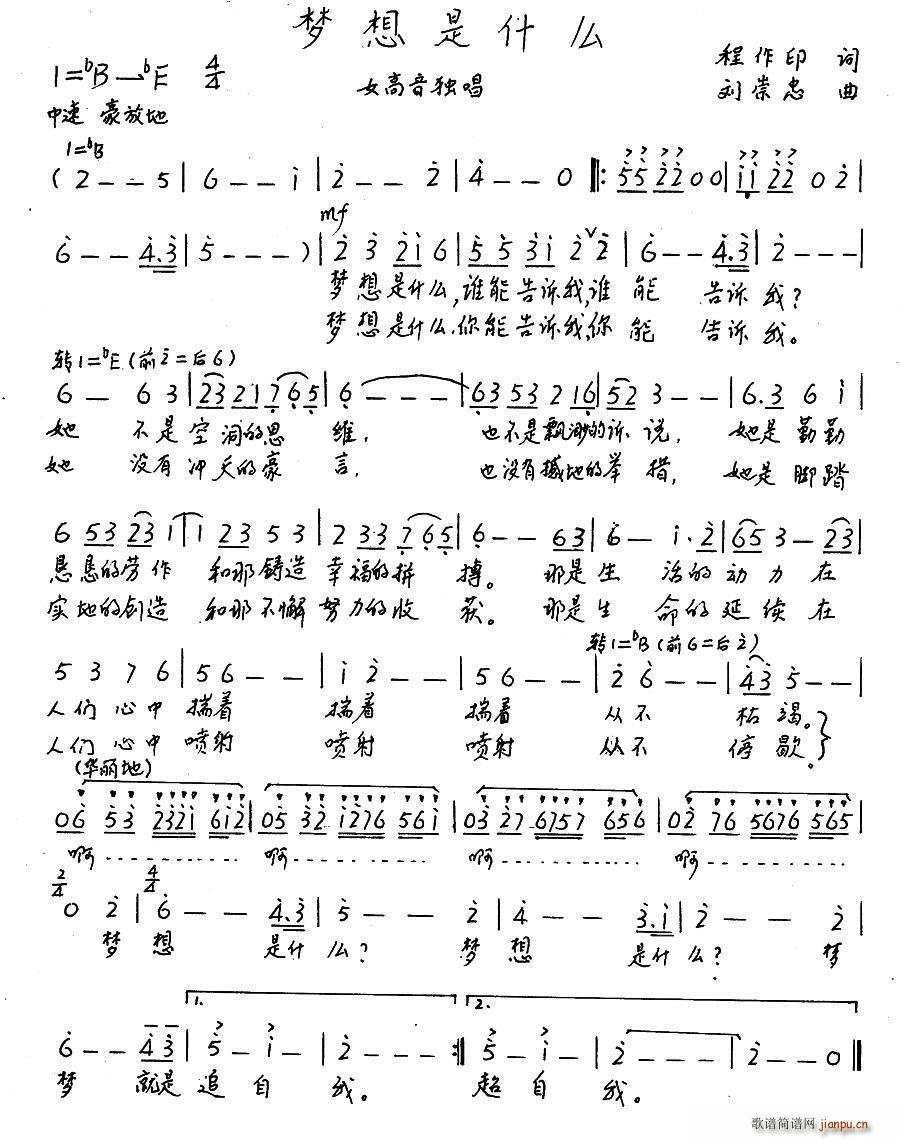 梦想是什么
1=♭B—♭E 4/4
女高音独唱
程作印 词
刘崇忠 曲
中速 豪放地
1=♭B
( 2 - - 5 | 6 - - i | 2 - - 2 | 4 - - 0 ‖: 55 22 0 0 | ii 22 0 2 |
mf
6 - - 4.3 | 5 - - - ) | 2 3 2i 6 | 5 5 3i 2 ∨ 2 | 6 - - 4.3 | 2 - - - |
梦想是什么,谁能告诉我,谁 能 告诉 我?
梦想是什么.你能告诉我,你 能 告诉 我。
转1=♭E (前2=后6)
6 - 6 3 | 23 21 7 65 | 6 - - - | 63 53 2 16 | 52 3 - - | 6.3 6 i |
她 不是空洞的思 维, 也不是飘渺的诉 说, 她是勤勤
她 没有冲天的豪 言, 也没有撼地的举 措, 她是脚踏
6 53 23 1 | 1 23 5 3 | 2 3·3 7 65 | 6 - - 63 | 6 - i . 2 | 65 3 - 23 |
恳恳的劳作 和那铸造 幸福的拼 搏。 那是生 活的动力 在
实地的创造 和那不懈 努力的收 获。 那是生 命的延续 在
转1=♭B (前6=后2)
5 3 7 6 | 5 6 - - | i 2 - - | 5 6 - - | 2 6 - - | 43 5 - - |
人们心中 揣着 揣着 揣着 从不 枯竭。
人们心中 喷射 喷射 喷射 从不 停歇。
(华丽地)
06 53 2321 6i2 | 05 32 i276 56i | 03 27 6757 656 | 02 76 5676 565 |
啊 啊 啊 啊
2/4 4/4
0 2 | 6 - - 4.3 | 5 - - 2 | 4 - - 3.i | 2 - - 2 |
梦 想 是什 么? 梦 想 是什 么? 梦
1. 2.
6 - - 4 3 | 5 - i - | 2 - - - :‖ 5 - i - | 2 - - - | 2 - - 0 ‖
梦 就是 追 自 我。 超 自 我。
歌谱简谱网
jianpu.cn